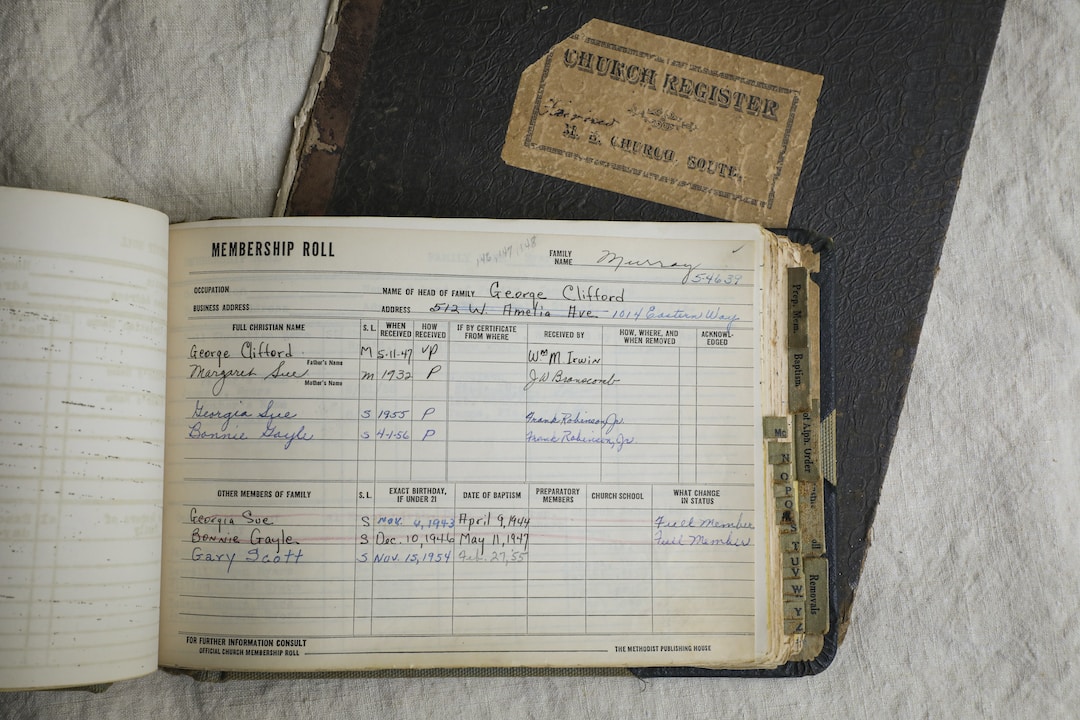 CHURCH REGISTER
M. E. CHURCH, SOUTH.
MEMBERSHIP ROLL
146, 147, 148
FAMILY NAME Murray
54639
OCCUPATION NAME OF HEAD OF FAMILY George Clifford
BUSINESS ADDRESS ADDRESS 512 W. Amelia Ave. - 1014 Eastern Way
FULL CHRISTIAN NAME S. L. WHEN RECEIVED HOW RECEIVED IF BY CERTIFICATE FROM WHERE RECEIVED BY HOW, WHERE, AND WHEN REMOVED ACKNOWL- EDGED
George Clifford M 5-11-47 VP Wm M Irwin
Father's Name
Margaret Sue M 1932 P J W Branscomb
Mother's Name
Georgia Sue S 1955 P Frank Robinson, Jr.
Bonnie Gayle S 4-1-56 P Frank Robinson, Jr.
OTHER MEMBERS OF FAMILY S. L. EXACT BIRTHDAY, IF UNDER 21 DATE OF BAPTISM PREPARATORY MEMBERS CHURCH SCHOOL WHAT CHANGE IN STATUS
Georgia Sue S Nov. 4, 1943 April 9, 1944 Full Member
Bonnie Gayle S Dec. 10, 1946 May 11, 1947 Full Member
Gary Scott S Nov. 15, 1954 Feb. 27, '55
FOR FURTHER INFORMATION CONSULT
OFFICIAL CHURCH MEMBERSHIP ROLL THE METHODIST PUBLISHING HOUSE
Prep. Mem.
Baptism
of Alph. Order
Removals
Mc
N
O
P
T
U
V
W
Y
Z